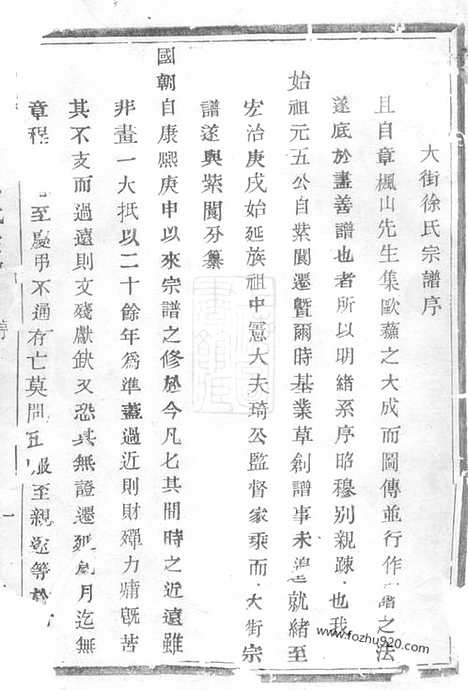 大街徐氏宗譜序
且自章楓山先生集歐蘇之大成而圖傳並行作譜之法
遂底於盡善譜也者所以明緒系序昭穆別親疎也我
始祖元五公自紫閬遷暨爾時基業草創譜事未遑就緒至
宏治庚戌始延族祖中憲大夫琦公監督家乘而大街宗
譜遂與紫閬分纂
國朝自康熙庚申以來宗譜之修於今凡七其間時之近遠雖
非畫一大抵以二十餘年為準蓋過近則財殫力痡既苦
其不支而過遠則文殘獻缺又恐其無證遷延歲月迄無
章程 至慶弔不通存亡莫問五服至親等於
序
一
www.fozhu920.com